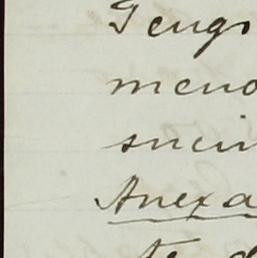 Tengo
meno
sucin
Anexa
te d